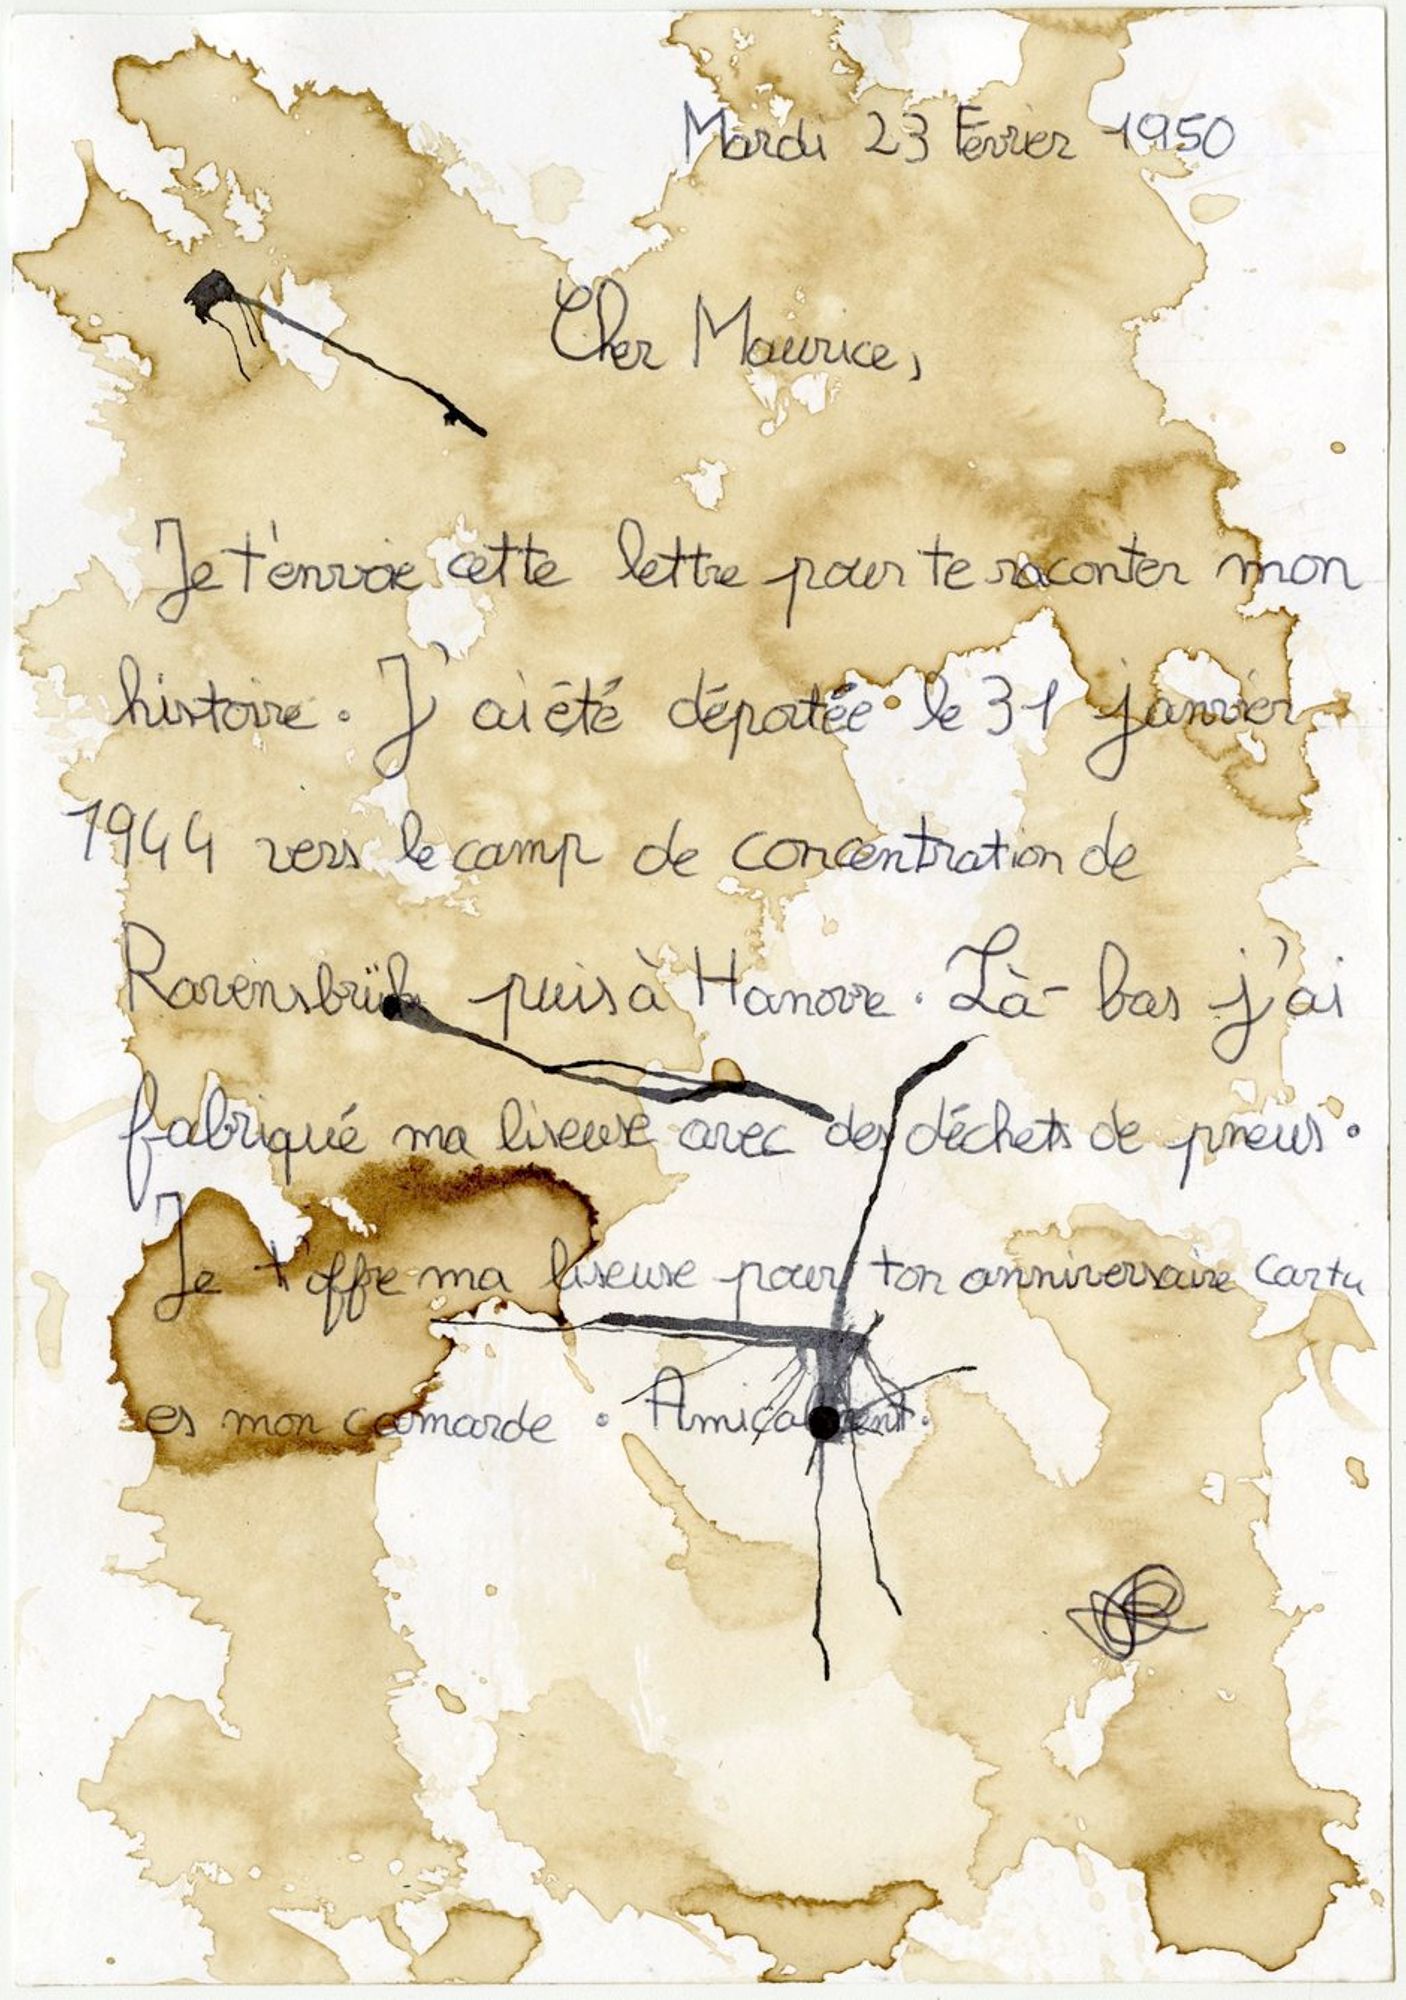 Mardi 23 Février 1950
Cher Maurice,
Je t'envoie cette lettre pour te raconter mon
histoire. J'ai été déportée le 31 janvier
1944 vers le camp de concentration de
puis à Hanovre. Là-bas j'ai
fabriqué ma liseuse avec des déchets de pneus.
Je t'offre ma liseuse pour ton anniversaire car tu
es mon camarde. Amicalement.